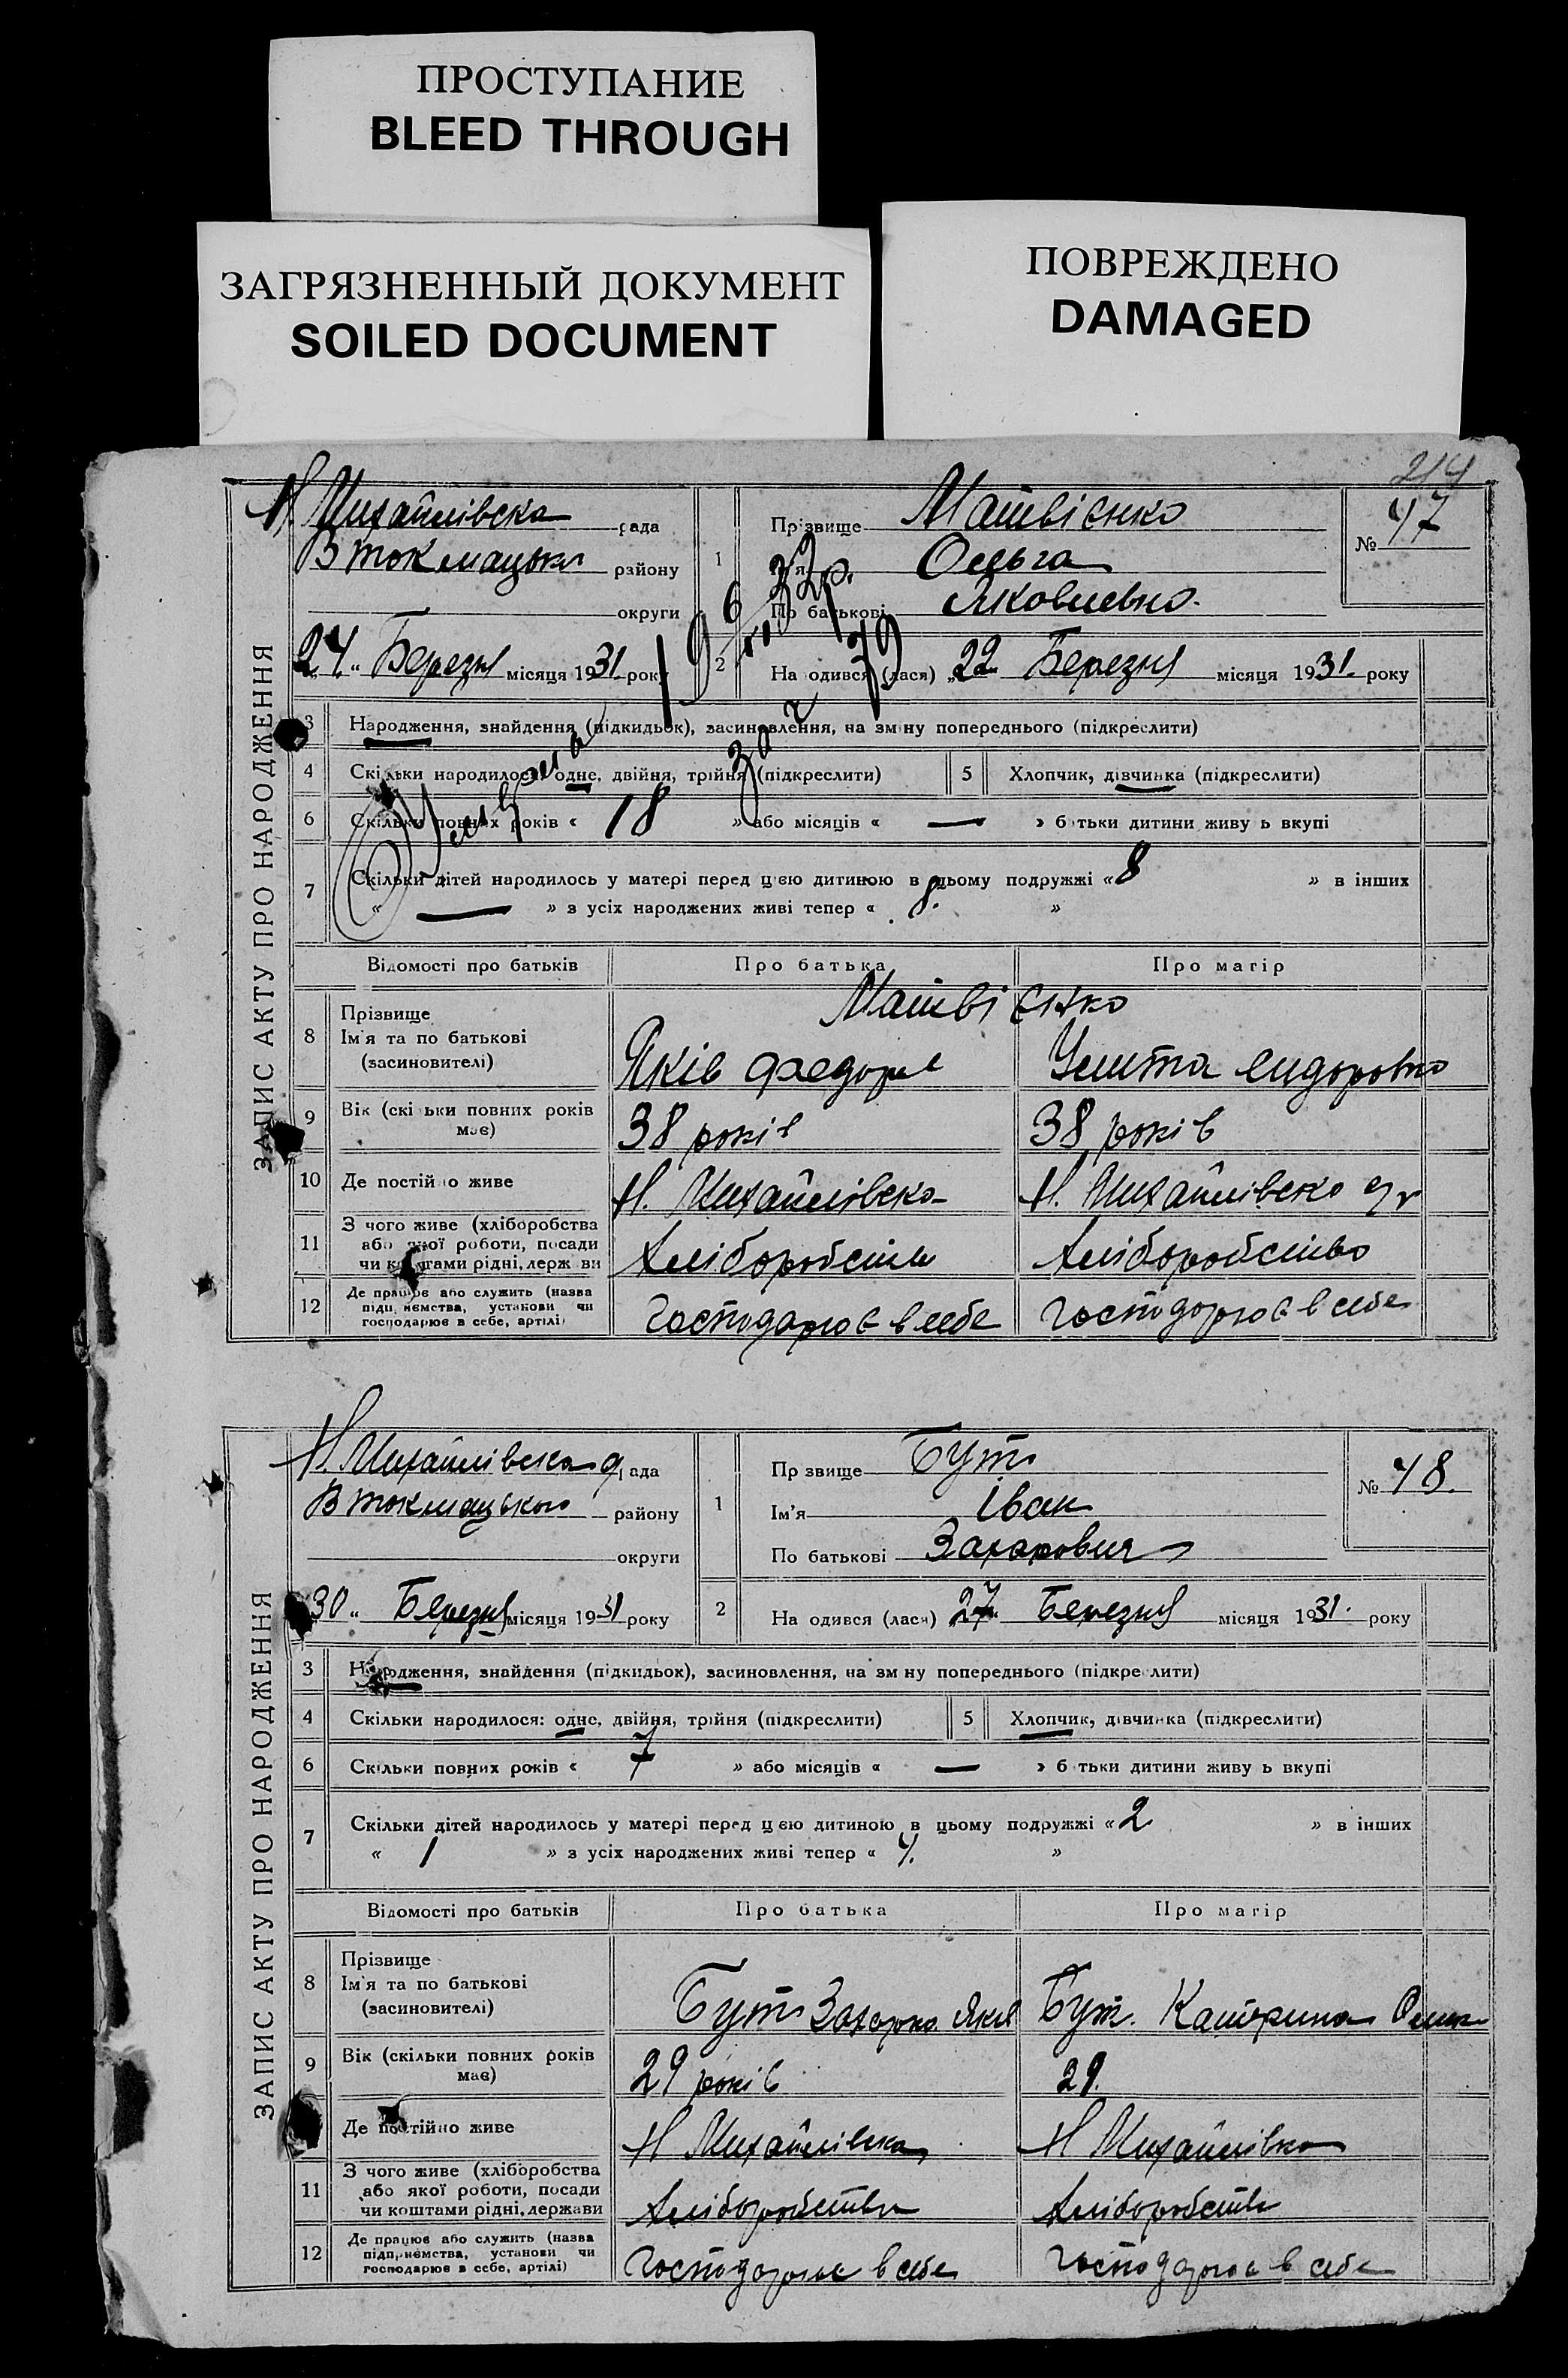 ПРОСТУПАНИЕ
BLEED THROUGH
ЗАГРЯЗНЕННЫЙ ДОКУМЕНТ
SOILED DOCUMENT
ПОВРЕЖДЕНО
DAMAGED
214
ЗАПИС АКТУ ПРО НАРОДЖЕННЯ
Н. Михайлівска рада
В Токмацьки району
округи
24 Березня місяця 1931 року
1
Прізвище Матвієнко
Ім'я Ольга
По батькові Яковлевна.
№ 47
2 На одився (лася) „22 Березня місяця 1931. року
3 Народження, знайдення (підкидьок), засиновлення, на зміну попереднього (підкреслити)
4 Скільки народилося: одне, двійня, трійня (підкреслити) 5 Хлопчик, дівчинка (підкреслити)
6 Скільки повних років « 18 » або місяців « — » батьки дитини живуь вкупі
7 Скільки дітей народилось у матері перед цією дитиною в цьому подружжі « 8 » в інших
« — » з усіх народжених живі тепер « 8. »
Відомості про батьків Про батька Про матір
8 Прізвище
Ім'я та по батькові
(засиновителі)
Матвієнко
Яків Федоров
38 років 38 років
9 Вік (скільки повних років
має)
10 Де постійно живе Н. Михайлівско Н. Михайлівско
11 З чого живе (хліборобства
або якої роботи, посади
чи коштами рідні, держави
Хліборобств Хліборобство
12 Де працює або служить (назва
підприємства, установи чи
господарює в себе, артілі)
Господарює в себе Господорює в себе
ЗАПИС АКТУ ПРО НАРОДЖЕННЯ
Н. Михайлівска рада
В Токмацького району
округи
30 „ Березня місяця 1931 року
1
Пр звище Бут
Ім'я Іван
По батькові Захарович
№ 48.
2 На одився (лася) 27 Березня місяця 1931. року
3 Народження, знайдення (підкидьок), засиновлення, на зм ну попереднього (підкреслити)
4 Скільки народилося: одне, двійня, трійня (підкреслити) 5 Хлопчик, дівчинка (підкреслити)
6 Скільки повних років « 7 » або місяців « — » б тьки дитини живу ь вкупі
7 Скільки дітей народилось у матері перед цією дитиною в цьому подружжі « 2 » в інших
« 1 » з усіх народжених живі тепер « 4. »
Відомості про батьків Про батька Про матір
8 Прізвище
Ім'я та по батькові
(засиновителі)
Бут Захарко Яков Бут. Катерина
9 Вік (скільки повних років
має)
29 років 29.
Де постійно живе Н Михайлівска Н Михайлівко
11 З чого живе (хліборобства
або якої роботи, посади
чи коштами рідні, держави
Хліборобство Хліборобств
12 Де працює або служить (назва
підприємства, установи чи
господарює в себе, артілі)
Господорює в себе Господарює в себе